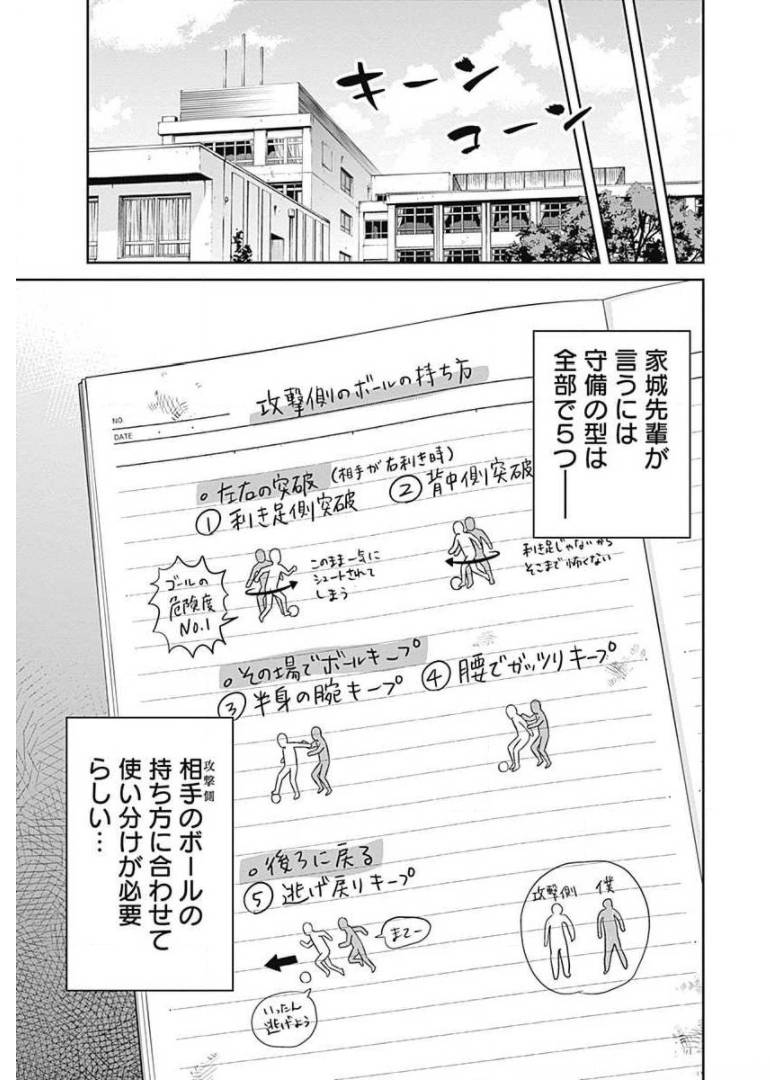 キーン
コーン
家城先輩が
言うには
守備の型は
全部で5つ──
NO.
DATE
攻撃側のボールの持ち方
○左右の突破(相手が右利き時)
①利き足側突破
②背中側突破
ゴールの
危険度
No.1
このまま一気に
シュートされて
しまう
利き足じゃないから
そこまで怖くない
○その場でボールキープ
③半身の腕キープ
④腰でガッツリキープ
○後ろに戻る
⑤逃げ戻りキープ
まてー
いったん
逃げよう
攻撃側
僕
攻撃側
相手のボールの
持ち方に合わせて
使い分けが必要
らしい…